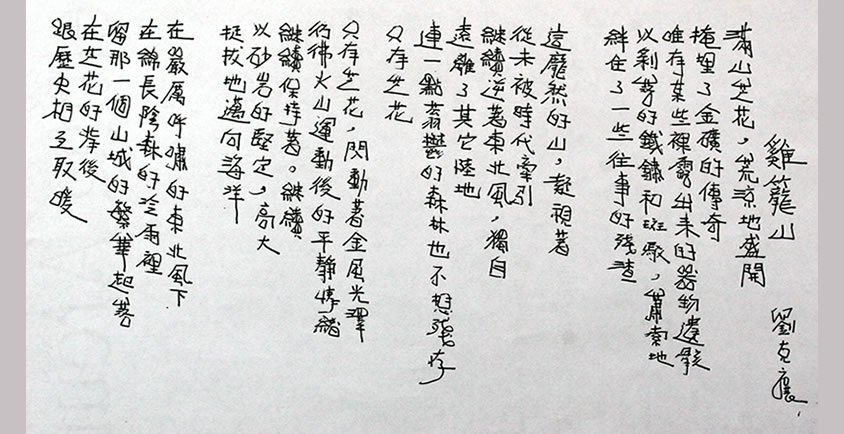 雞籠山 劉克襄
滿山芒花，荒涼地盛開
掩埋了金礦的傳奇
唯存某些裸露出來的器物遺骸
以剝落的鐵鏽和斑駁，蕭索地
絆住了一些往事的殘渣
這龐然的山，凝視著
從未被時代牽引
繼續逆著東北風，獨自
遠離了其它陸地
連一點蓊鬱的森林也不想殘存
只存芒花
只存芒花，閃動著金屬光澤
彷彿火山運動後的平靜情緒
繼續保持著。繼續
以砂岩的堅定，高大
挺拔地邁向海洋
在嚴厲呼嘯的東北風下
在綿長陰森的冷雨裡
留那一個山城的繁華起落
在芒花的背後
跟歷史相互取暖